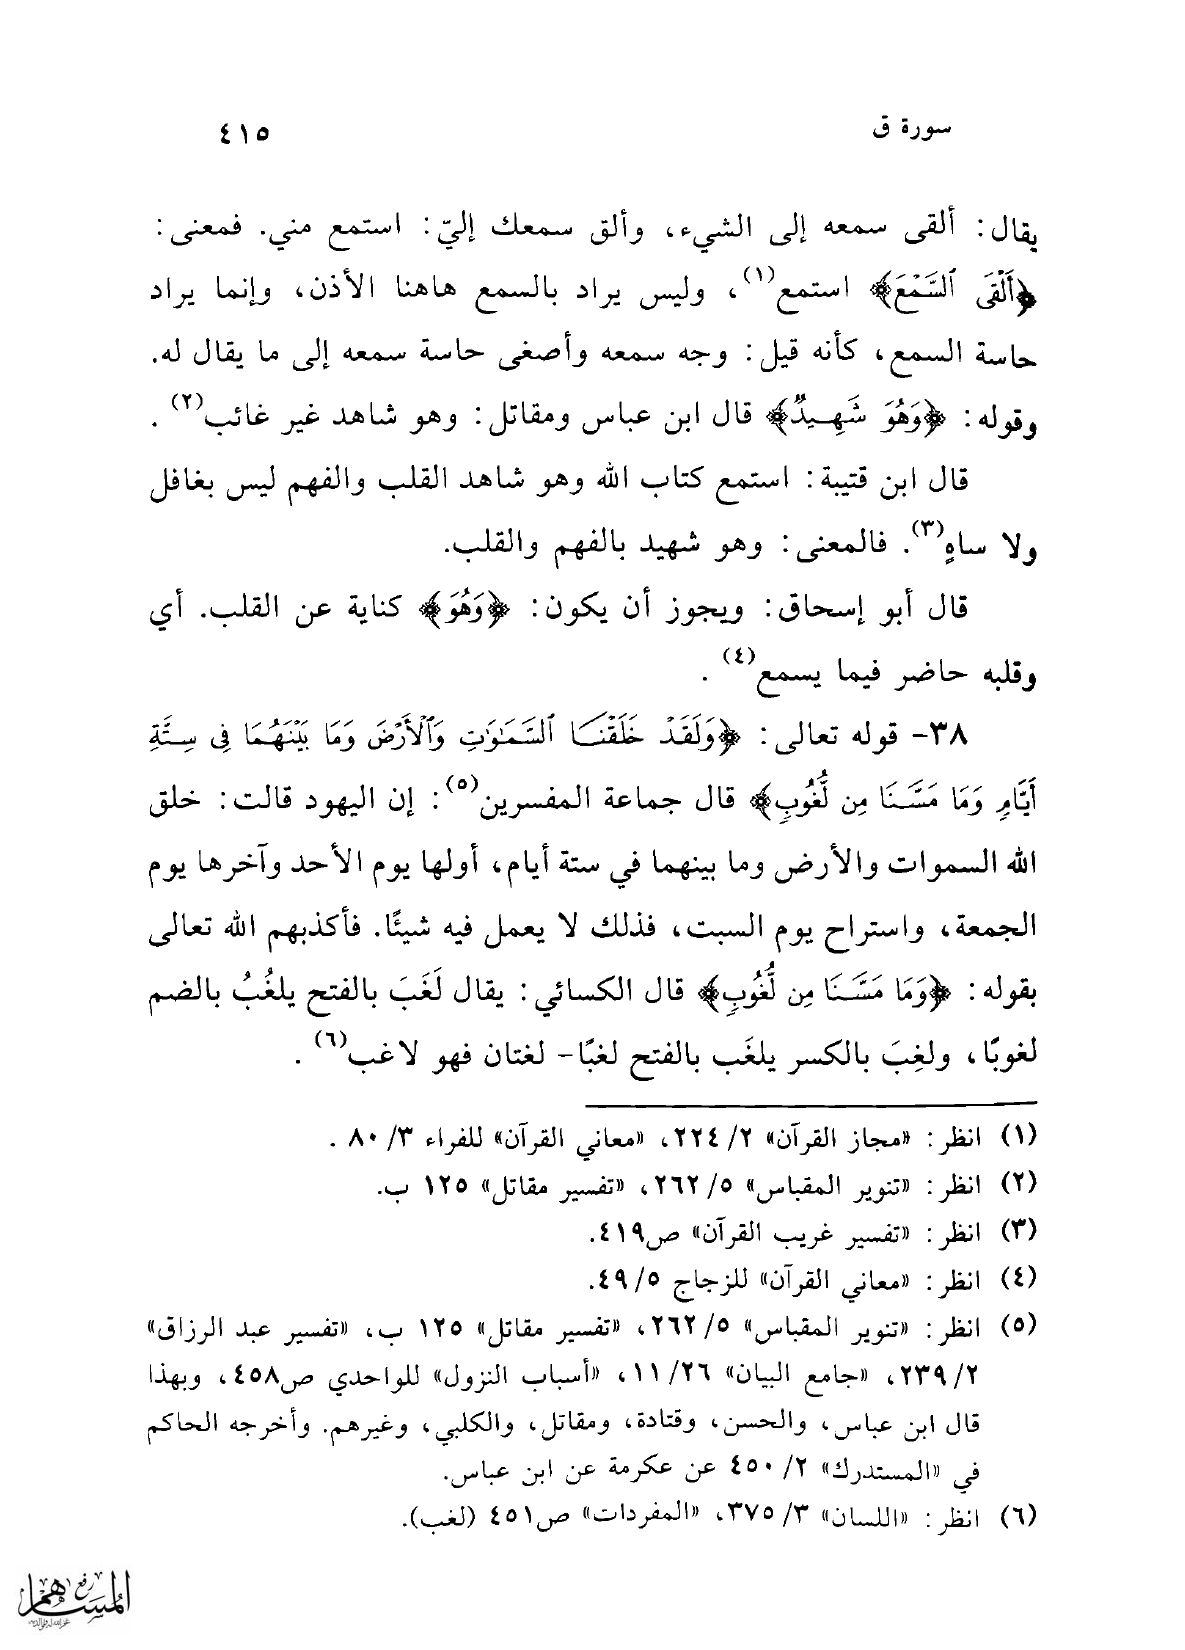 سورة ق ٤١٥
يقال: ألقى سمعه إلى الشيء، وألق سمعك إليّ: استمع مني. فمعنى:
﴿أَلْقَى ٱلسَّمْعَ﴾ استمع(١)، وليس يراد بالسمع هاهنا الأذن، وإنما يراد
حاسة السمع، كأنه قيل: وجه سمعه وأصغى حاسة سمعه إلى ما يقال له.
وقوله: ﴿وَهُوَ شَهِيدٌ﴾ قال ابن عباس ومقاتل: وهو شاهد غير غائب(٢).
قال ابن قتيبة: استمع كتاب الله وهو شاهد القلب والفهم ليس بغافل
ولا ساهٍ(٣). فالمعنى: وهو شهيد بالفهم والقلب.
قال أبو إسحاق: ويجوز أن يكون: ﴿وَهُوَ﴾ كناية عن القلب. أي
وقلبه حاضر فيما يسمع(٤).
٣٨- قوله تعالى: ﴿وَلَقَدْ خَلَقْنَا ٱلسَّمَٰوَٰتِ وَٱلْأَرْضَ وَمَا بَيْنَهُمَا فِى سِتَّةِ
أَيَّامٍ وَمَا مَسَّنَا مِن لُّغُوبٍ﴾ قال جماعة المفسرين(٥): إن اليهود قالت: خلق
الله السموات والأرض وما بينهما في ستة أيام، أولها يوم الأحد وآخرها يوم
الجمعة، واستراح يوم السبت، فذلك لا يعمل فيه شيئًا. فأكذبهم الله تعالى
بقوله: ﴿وَمَا مَسَّنَا مِن لُّغُوبٍ﴾ قال الكسائي: يقال لَغَبَ بالفتح يلغُبُ بالضم
لغوبًا، ولغِبَ بالكسر يلغَب بالفتح لغبًا- لغتان فهو لاغب(٦).
(١) انظر: «مجاز القرآن» ٢/ ٢٢٤، «معاني القرآن» للفراء ٣/ ٨٠.
(٢) انظر: «تنوير المقباس» ٥/ ٢٦٢، «تفسير مقاتل» ١٢٥ ب.
(٣) انظر: «تفسير غريب القرآن» ص٤١٩.
(٤) انظر: «معاني القرآن» للزجاج ٥/ ٤٩.
(٥) انظر: «تنوير المقباس» ٥/ ٢٦٢، «تفسير مقاتل» ١٢٥ ب، «تفسير عبد الرزاق»
٢/ ٢٣٩، «جامع البيان» ٢٦/ ١١، «أسباب النزول» للواحدي ص٤٥٨، وبهذا
قال ابن عباس، والحسن، وقتادة، ومقاتل، والكلبي، وغيرهم. وأخرجه الحاكم
في «المستدرك» ٢/ ٤٥٠ عن عكرمة عن ابن عباس.
(٦) انظر: «اللسان» ٣/ ٣٧٥، «المفردات» ص٤٥١ (لغب).